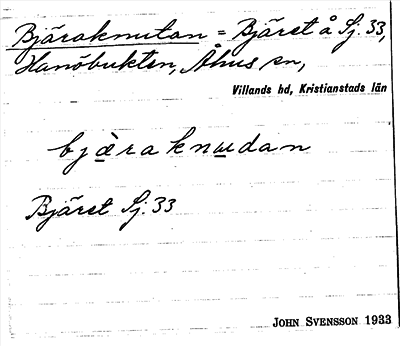 Bjäraknutan = Bjäret å Sj. 33,
Hanöbukten, Åhus sn,
Villands hd, Kristianstads län
bjæ̀raknudan
Bjäret Sj. 33
JOHN SVENSSON 1933